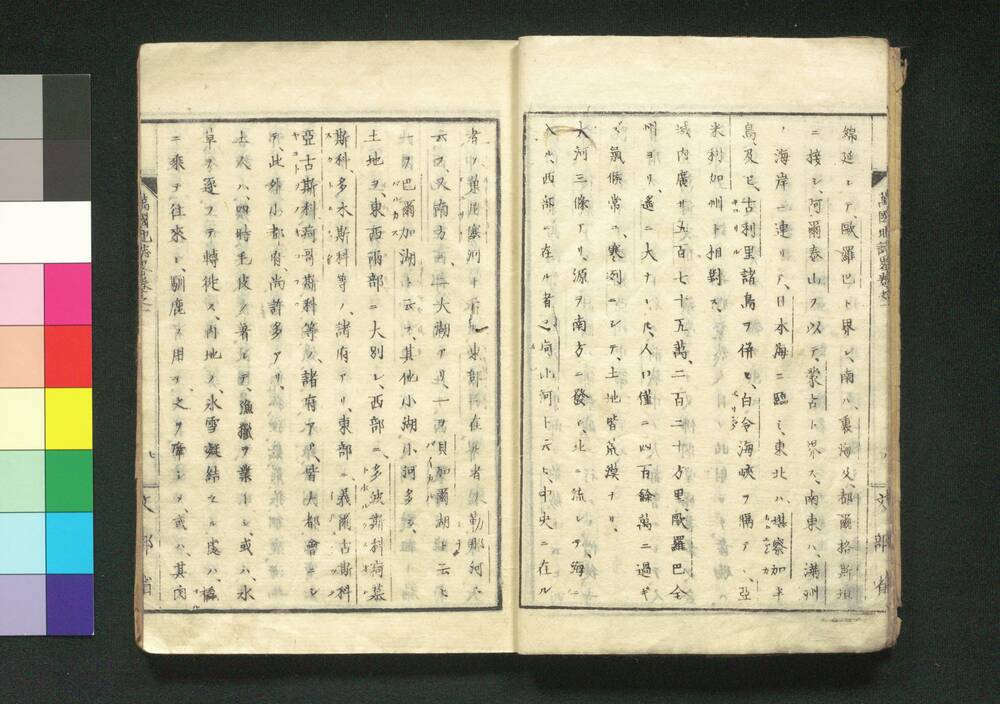 綿延シテ、歐羅巴ト界シ、南ハ、裏海及、都爾格斯坦
ニ接シ、阿爾泰山ヲ以テ、蒙古ト界ス、南東ハ、滿州
ノ海岸ニ連リ、日本海ニ臨ミ、東北ハ、堪察加半
島、及ヒ、古利里諸島ヲ併セ、白令海峽ヲ隔テ、亞
米利加州ト相對ス、
域内廣サ五百七十五萬、二百二十方里、歐羅巴全
州ヨリ、遙ニ大ナレトモ、人口僅ニ四百餘萬ニ過キ
ス、氣候常ニ、寒冽ニシテ、土地皆荒漠ナリ、
大河三條アリ、源ヲ南方ニ發シ、北ニ流レテ、海ニ
入ル、西部ニ在ル者ヲ、 河ト云ヒ、中央ニ在ル
者ヲ、 塞河ト云ヒ、東部ニ在ル者ヲ、勒那河ト
云フ、又南方ニ、二大湖アリ、一ヲ貝加爾湖ト云ヒ、
一ヲ巴爾加湖ト云フ、其他小湖小河多シ、
土地ヲ、東西兩部ニ大別シ、西部ニ、多波斯科、 慕
斯科、多木斯科等ノ、諸府アリ、東部ニ、義爾古斯科、
亞古斯科、 哥斯科等ノ、諸府アリ、皆大都會ニシ
テ、此外小都府、尚許多アリ、
土人ハ、四時毛皮ヲ著シテ、漁獵ヲ業トシ、或ハ、水
草ヲ逐フテ轉徙ス、内地ノ氷雪凝結スル處ハ、橇
ニ乘テ往來シ、馴鹿ヲ用ヒテ、之ヲ牽シメ、或ハ、其肉
萬國地誌畧卷之二
文部省